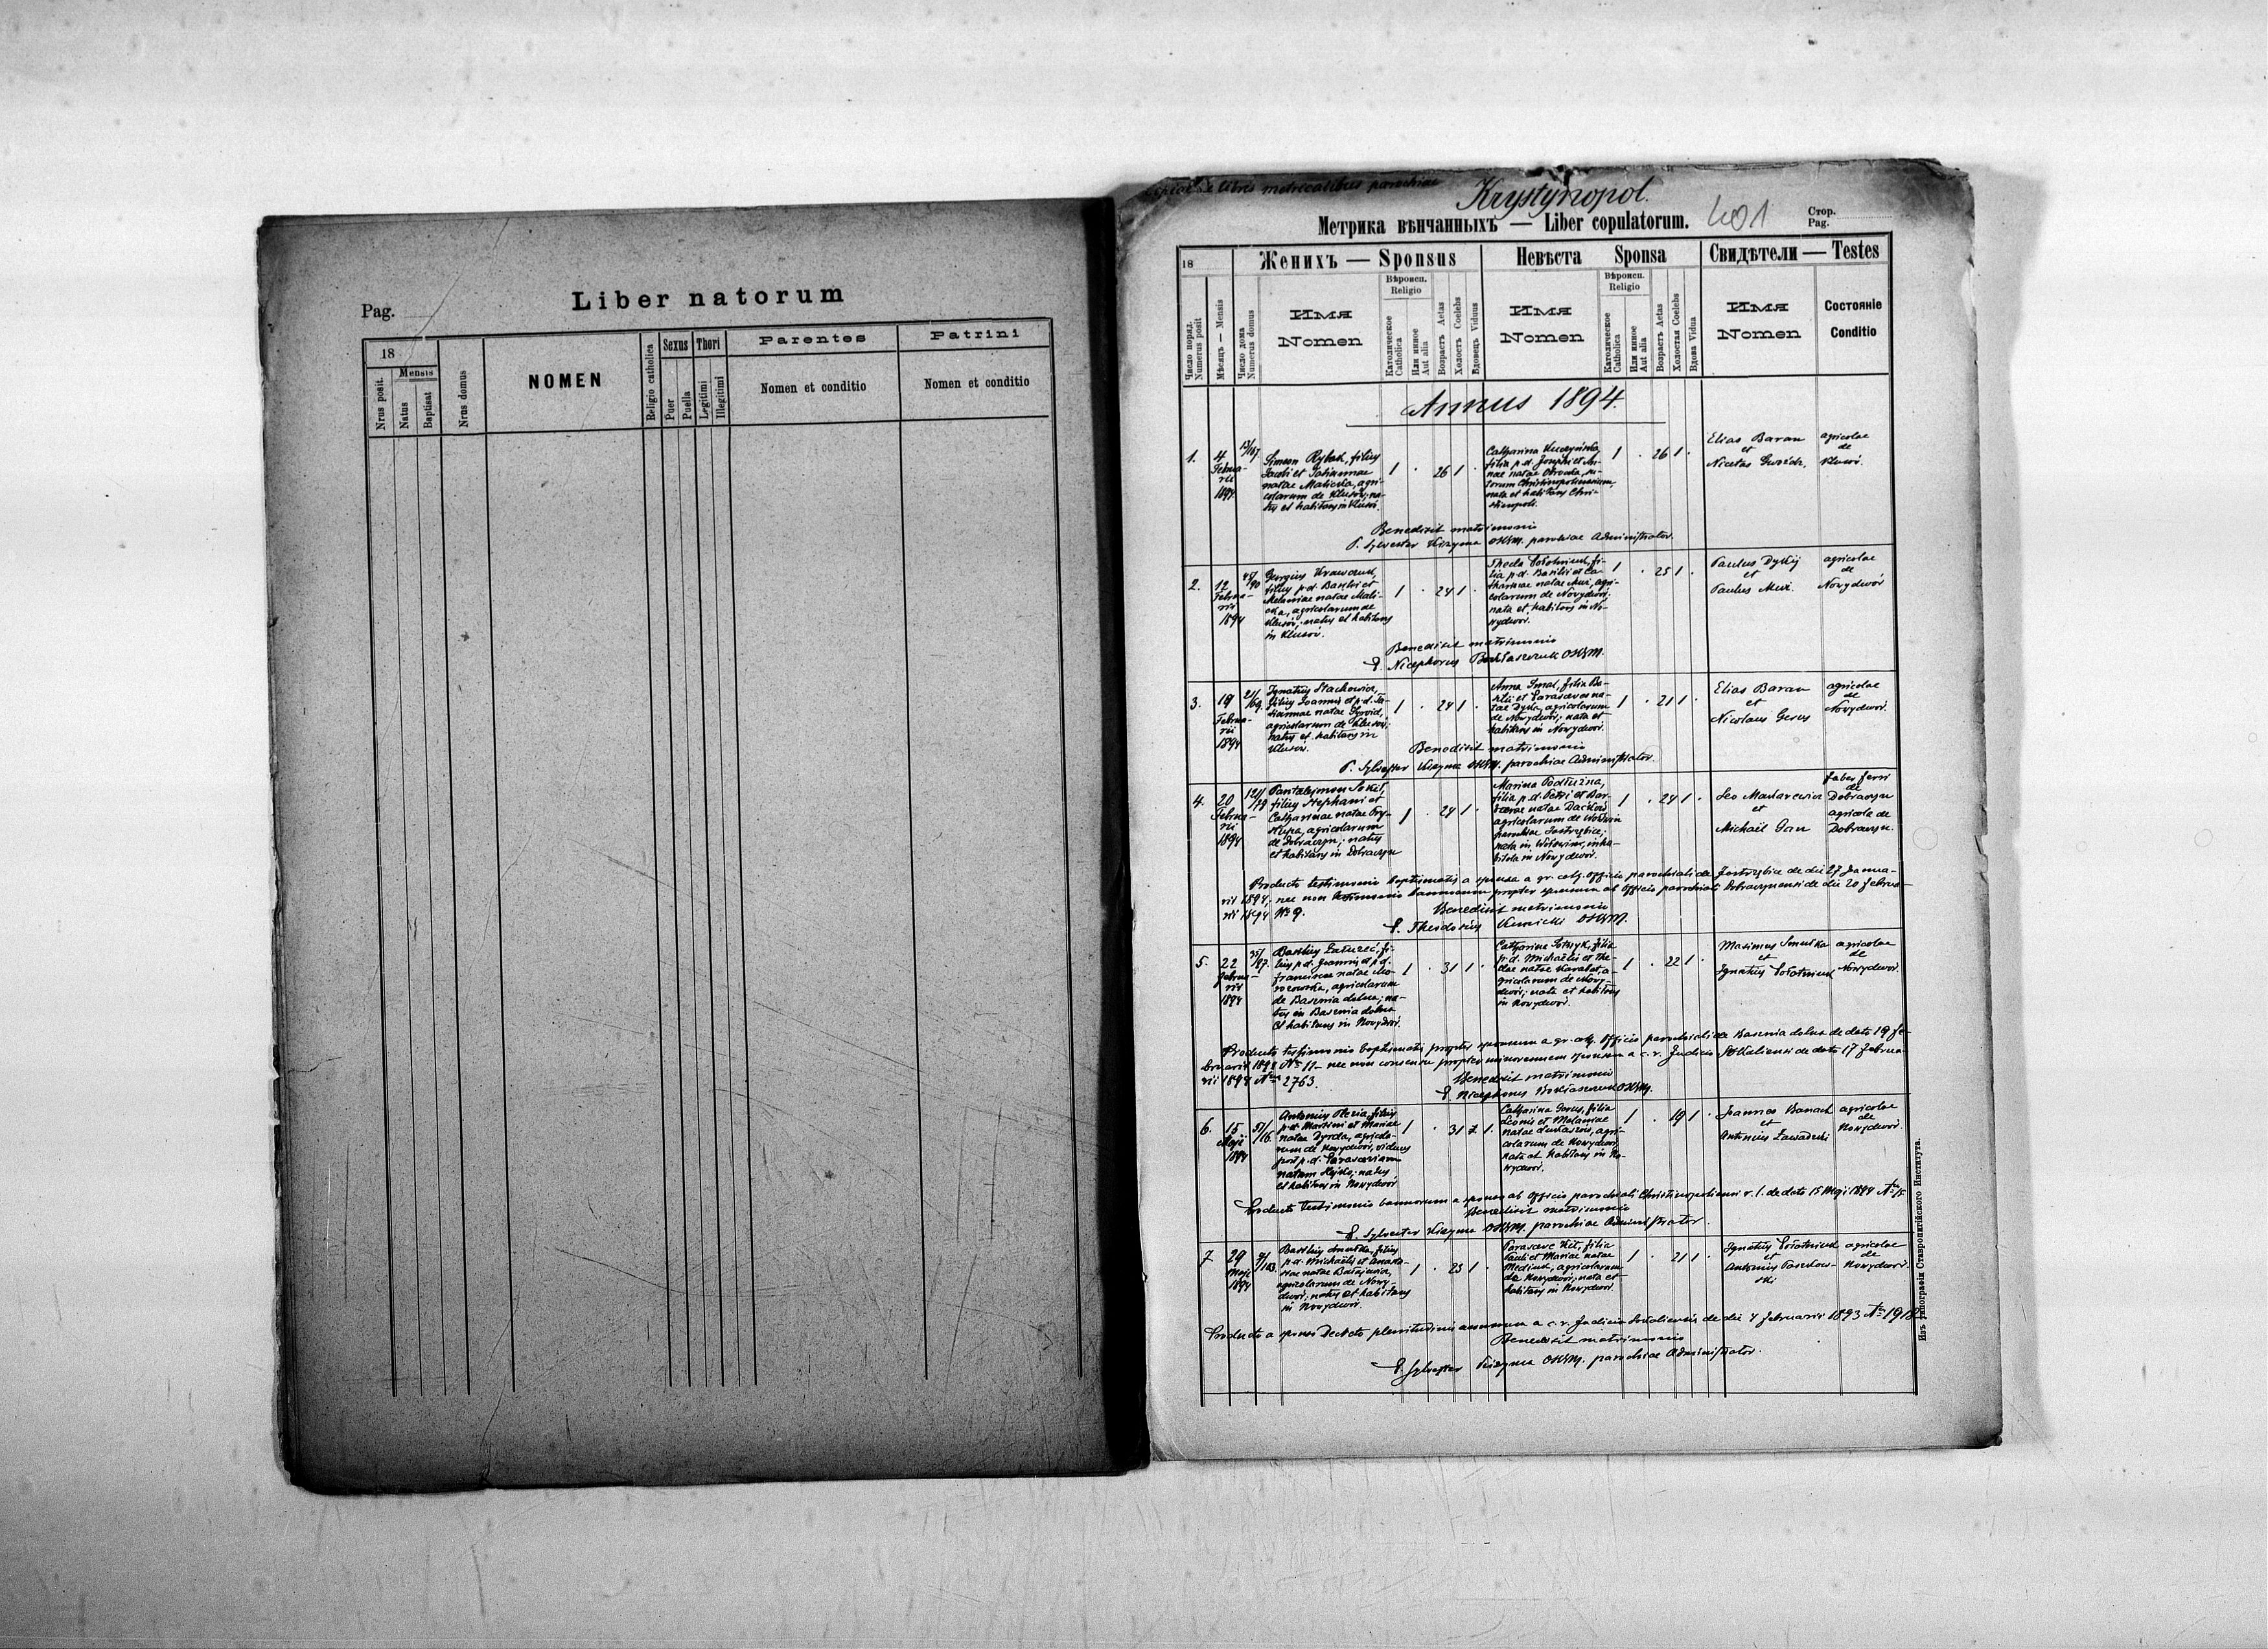 Pag.
Liber natorum
18
Mensis
Nrus posit.
Natus
Baptisat
Nrus domus
NOMEN
Religio catholica
Sexus
Puer
Puella
Thori
Legitimi
Illegitimi
Parentes
Nomen et conditio
Patrini
Nomen et conditio
libris metricalibus parochiae
Krystynopol.
Метрика вѣнчанныхъ — Liber copulatorum.
401
Стор.
Pag.
18
Женихъ — Sponsus
Невѣста Sponsa
Свидѣтели — Testes
Число поряд.
Numerus posit
Мѣсяцъ — Mensis
Число дома
Numerus domus
Имя
Nomen
Вѣроисп.
Religio
Католическое
Catholica
Или иное
Aut alia
Возрастъ Aetas
Холостъ Coelebs
Вдовецъ Viduus
Имя
Nomen
Вѣроисп.
Religio
Католическое
Catholica
Или иное
Aut alia
Возрастъ Aetas
Холостая Coelebs
Вдова Vidua
Имя
Nomen
Состояніе
Conditio
Annus 1894.
1.
4
Februa-
rii
1894
Simeon Rybak, filius
Jacobi et Tatiannae
natae Malicka, agri-
colarum de Klusów, na-
tus et habitans in Klusów.
1 . 26 1 .
Catharina
filia p.d. Josephi et An-
nae natae
nata et habitans Chri-
stinopoli.
1 . 26 1 .
Elias Baran
et
Nicetas
agricolae
de
Klusów.
Benedixit matrimonio
P. Sylvester Kizyma OSBM. parochiae Administrator.
2.
12
Februa-
rii
1894
45/90
Georgius Krawczuk,
filius p.d. Basilii et
Melaniae natae Mali-
cka, agricolarum de
Klusów; natus et habitans
in Klusów.
1 . 24 1 .
Thecla Sołotwiuk, fi-
lia p.d. Basilii et Ca-
tharinae natae Muż, agri-
colarum de Nowydwór;
nata et habitans in No-
wydwór.
1 . 25 1 .
Paulus Dykij
et
Paulus Muż.
agricolae
de
Nowydwór
Benedixit matrimonio
P. Nicephorus OSBM.
3.
19
Februa-
rii
1894
2/69.
Ignatius Stachowicz,
filius Joannis et p.d. Ta-
tiannae natae
agricolarum de Klusów;
natus et habitans in
Klusów.
1 . 24 1 .
Anna Smal, filia Ba-
silii et Parascevae na-
tae Dyda, agricolarum
de Nowydwór; nata et
habitans in Nowydwór.
1 . 21 1 .
Elias Baran
et
Nicolaus Gerus
agricolae
de
Nowydwór.
Benedixit matrimonio
P. Sylvester Kizyma OSBM. parochiae Administrator.
4.
20
Februa-
rii
1894
121/79
Pantaleymon Sokił,
filius Stephani et
Catharinae natae Pry-
stupa, agricolarum
de Dobraczyn; natus
et habitans in Dobraczyn
1 . 24 1 .
Marina
filia p.d. Petri et Bar-
barae natae Daćków
agricolarum de
parochiae Jastrzębica;
nata in inha-
bitata in Nowydwór.
1 . 24 1 .
Leo
et
Michaël Gau
faber ferri
de
Dobraczyn
agricola de
Dobraczyn.
Producto testimonio baptismatis a sponsa a gr. cath. officio parochiali de Jastrzębica de die 27 Janua-
rii 1894, nec non testimonio bannorum propter sponsum ab officio parochiali Dobraczynensi de die 20 februa-
rii 1894 No 9.
Benedixit matrimonio
P. Theodosius OSBM.
5.
22
Februa-
rii
1894
35/87.
Basilius fi-
lius p.d. Joannis et p.d.
Franciscae natae Mo-
rozowska, agricolarum
de Basznia dolna; na-
tus in Basznia dolna
et habitans in Nowydwór.
1 . 31 1 .
Catharina Sotnyk, filia
p.d. Michaëlis et The-
clae natae Karabat, a-
gricolarum de Nowy-
dwór; nata et habitans
in Nowydwór.
1 . 22 1 .
Maximus Smutka
et
Ignatius Sołotwiuk
agricolae
de
Nowydwór.
Producto testimonio baptismatis propter sponsum a gr. cath. officio parochiali de Basznia dolna de dato 19 fe-
bruarii 1894 No 11 — nec non consensu propter minorennem sponsam a c. r. Judicio Sokaliensi de dato 17 februa-
rii 1894 No 2763.
Benedixit matrimonio
P. Nicephorus OSBM.
6.
15
Maji
1894
51/16.
Antonius Olezia, filius
p.d. Martini et Mariae
natae Dyrda, agricola-
rum de Nowydwór, viduus
post p.d. Parasceviam
natam natus
et habitans in Nowydwór
1 . 31 . 1.
Catharina Gerus, filia
Leonis et Melaniae
natae agri-
colarum de Nowydwór,
nata et habitans in No-
wydwór.
1 . 19 1 .
Joannes Banach
et
Antonius Zawadzki
agricolae
de
Nowydwór.
Producto testimonio bannorum a sponso ab officio parochiali Christinopoliensi r. l. de dato 15 Maji 1894 No 15
Benedixit matrimonio
P. Sylvester Kizyma OSBM. parochiae Administrator.
7
29
Maji
1894
Basilius Smutka, filius
p.d. Michaëlis et Anasta-
siae natae
agricolarum de Nowy-
dwór; natus et habitans
in Nowydwór.
1 . 23 1 .
Parasceve Kit, filia
Pauli et Mariae natae
Mediuch, agricolarum
de Nowydwór; nata et
habitans in Nowydwór.
1 . 21 1 .
Ignatius Sołotwiuk
et
Antonius Paszkow-
ski
agricolae
de
Nowydwór.
Producto a sponso Decreto plenitudinis annorum a c. r. Judicio Sokaliensis de die 4 februarii 1893 No 1918
Benedixit matrimonio
P. Sylvester Kizyma OSBM. parochiae Administrator.
Изъ типографіи Ставропигійского Института.